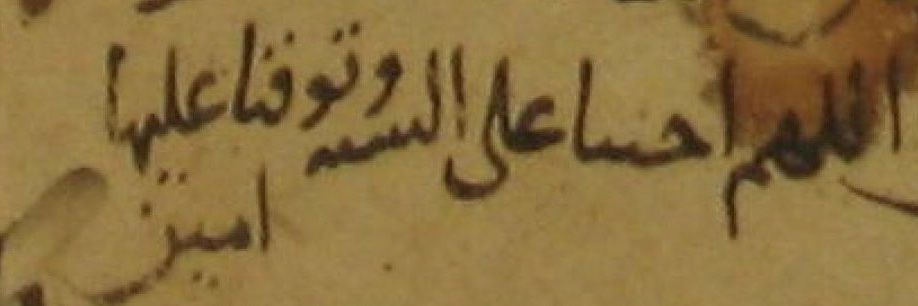 اللهم احينا على السنه وتوفنا عليها
امين